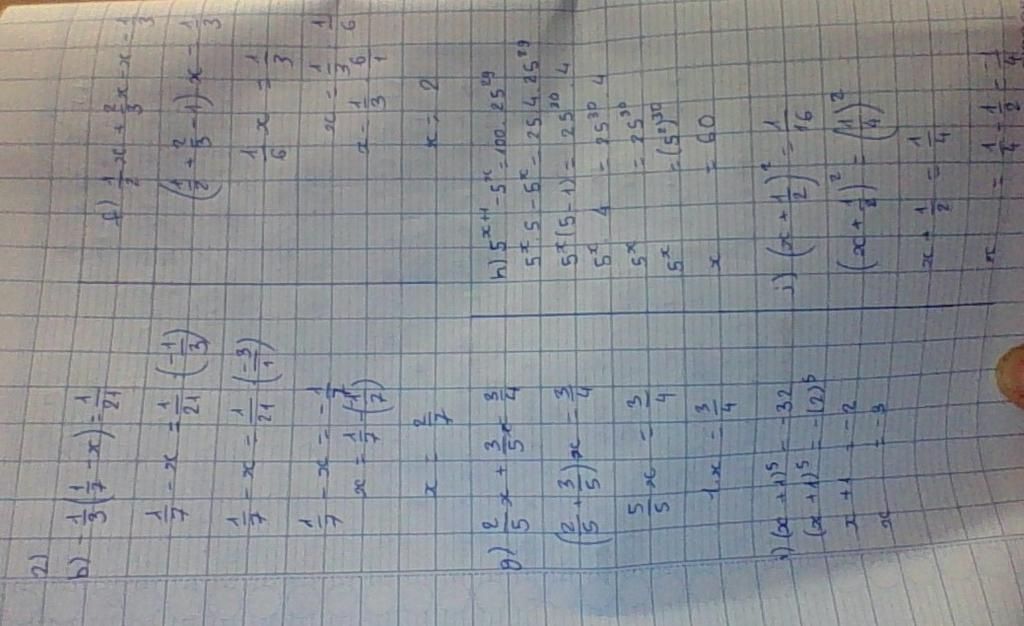 2)
b) -1/3 (1/7 - x) = 1/21
1/7 - x = 1/21 : (-1/3)
1/7 - x = 1/21 · (-3/1)
1/7 - x = -1/7
x = 1/7 - (-1/7)
x = 2/7
f) 1/2 x + 2/3 x - x = 1/3
(1/2 + 2/3 - 1) x = 1/3
1/6 x = 1/3
x = 1/3 : 1/6
x = 1/3 · 6/1
x = 2
g) 2/5 x + 3/5 x = 3/4
(2/5 + 3/5) x = 3/4
5/5 x = 3/4
1 · x = 3/4
h) 5^(x+1) - 5^x = 100 · 25^29
5^x · 5 - 5^x = 25 · 4 · 25^29
5^x (5 - 1) = 25^30 · 4
5^x · 4 = 25^30 · 4
5^x = 25^30
5^x = (5^2)^30
x = 60
i) (x + 1)^5 = -32
(x + 1)^5 = -(2)^5
x + 1 = -2
x = -3
j) (x + 1/2)^2 = 1/16
(x + 1/2)^2 = (1/4)^2
x + 1/2 = 1/4
x = 1/4 - 1/2 = -1/4